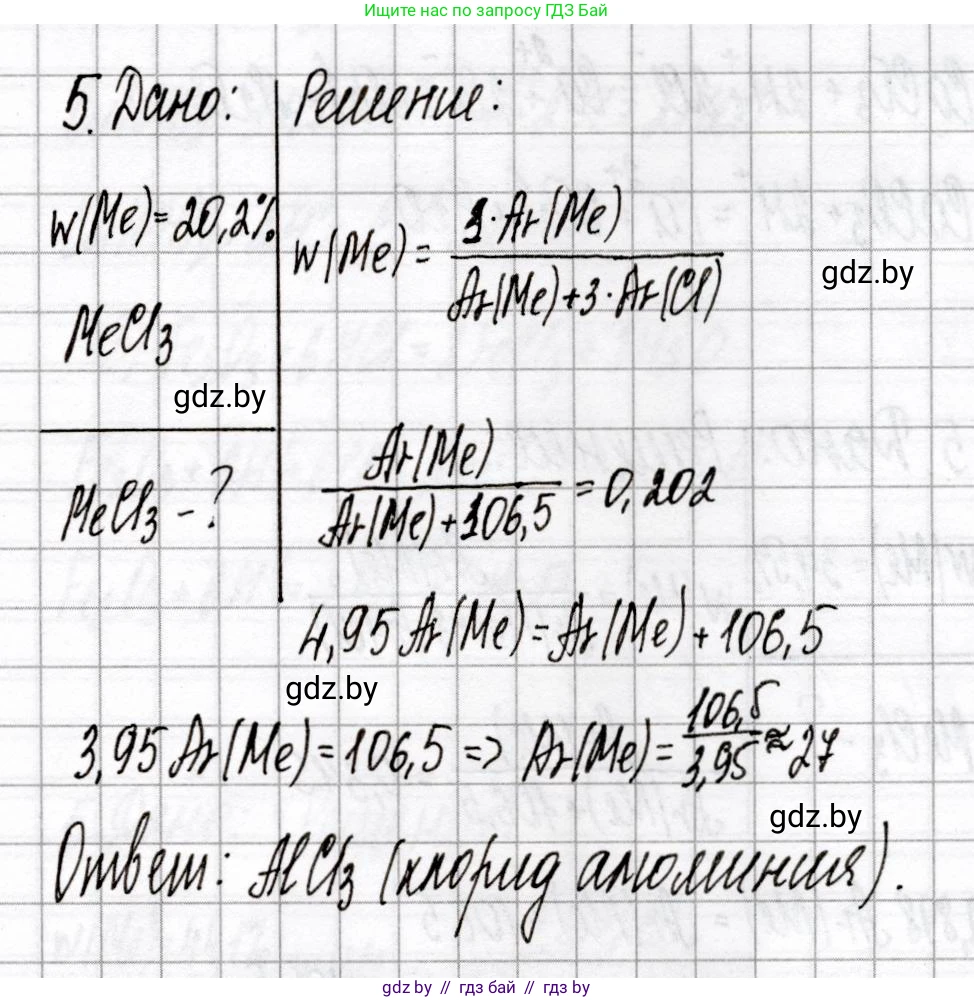 Ищите нас по запросу ГДЗ Бай
5. Дано: Решение:
w(Me) = 20,2%
w(Me) = 1·Ar(Me) / Ar(Me)+3·Ar(Cl)
gdz.by
MeCl₃
gdz.by
MeCl₃ - ?
Ar(Me) / Ar(Me)+106,5 = 0,202
4,95 Ar(Me) = Ar(Me) + 106,5
gdz.by
3,95 Ar(Me) = 106,5 => Ar(Me) = 106,5 / 3,95 ≈ 27
gdz.by
Ответ: AlCl₃ (хлорид алюминия).
gdz.by // гдз бай // гдз by